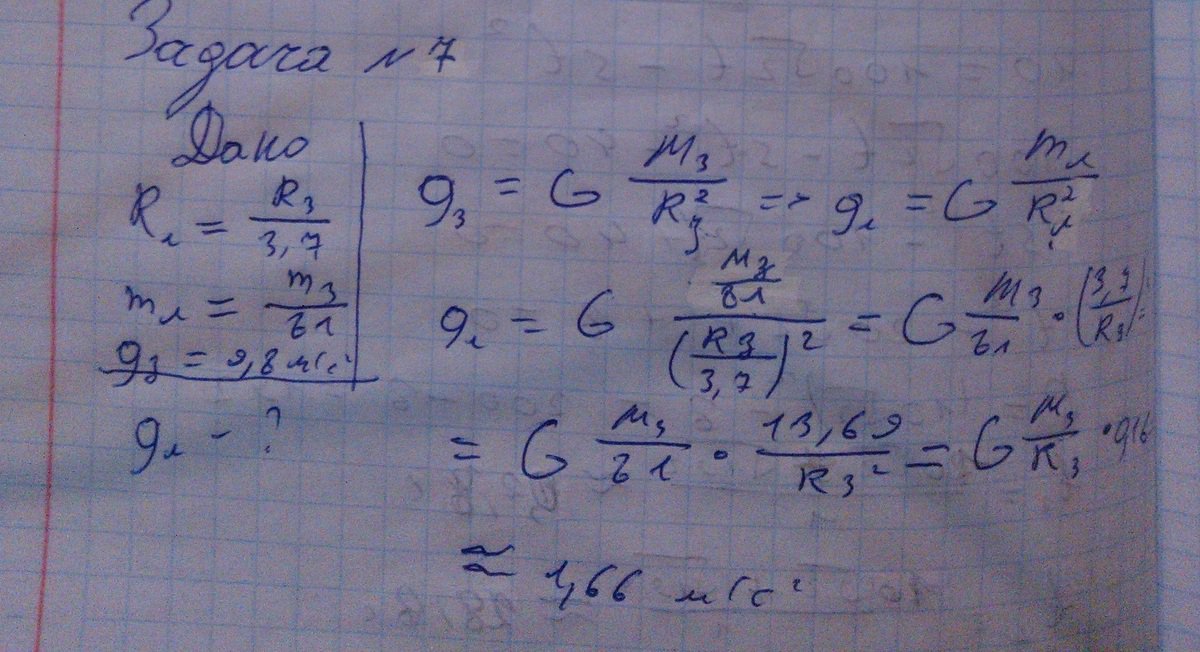 Задача №7
Дано
Rл = Rз / 3,7
mл = mз / 81
gз = 9,8 м/с²
gл - ?
gз = G Mз / Rз² => gл = G mл / Rл²
gл = G (Mз / 81) / (Rз / 3,7)² = G Mз / 81 · (3,7 / Rз)² =
= G Mз / 81 · 13,69 / Rз² = G Mз / Rз
≈ 1,66 м/с²